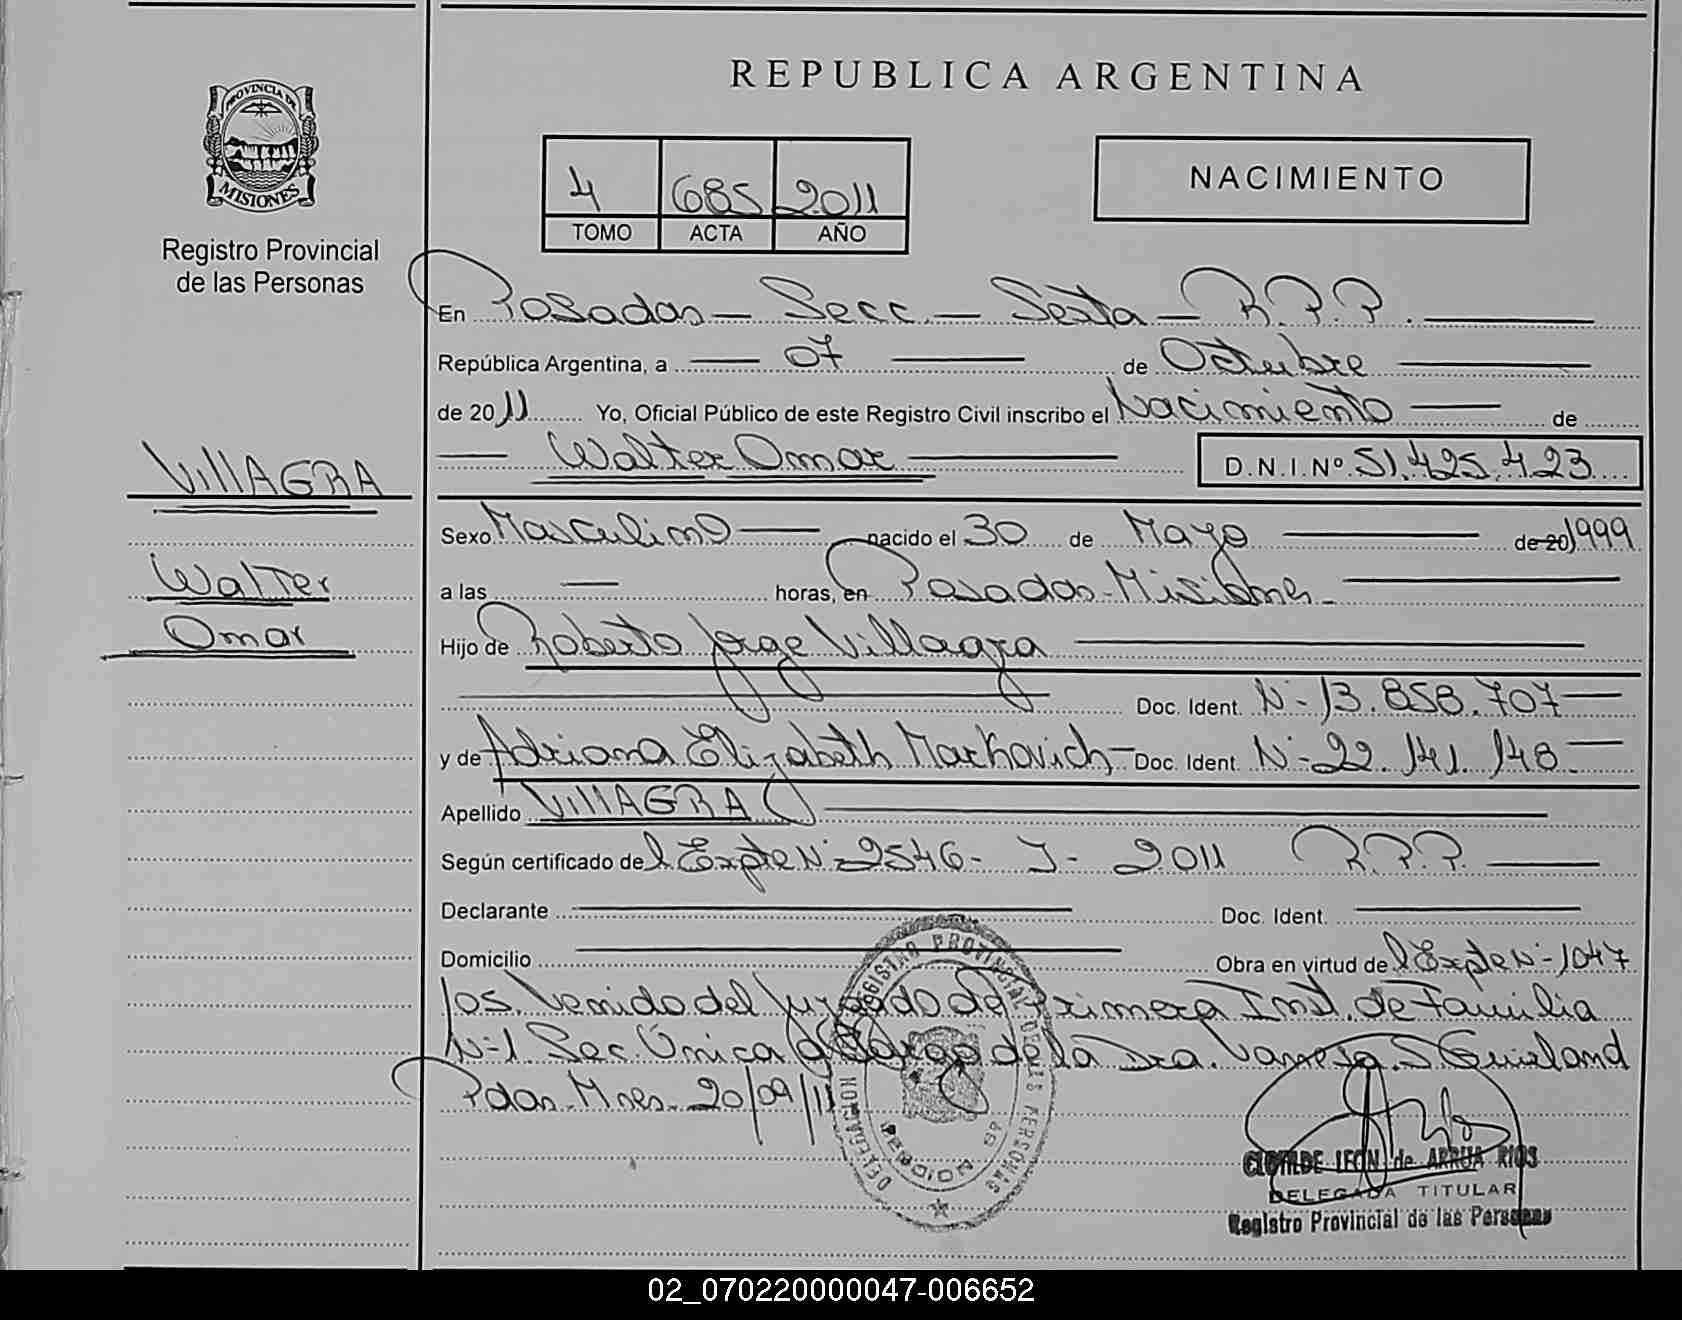 REPUBLICA ARGENTINA
PROVINCIA DE
MISIONES
Registro Provincial
de las Personas
4 685 2011
TOMO ACTA AÑO
NACIMIENTO
En Posadas — Secc. — Sexta — R.P.P.
República Argentina, a — 07 — de Octubre
de 2011 Yo, Oficial Público de este Registro Civil inscribo el Nacimiento — de
— Walter Omar — D.N.I.Nº 51.425.423
VillAGRA
Walter
Omar
Sexo Masculino — nacido el 30 de Mayo — de 20 1999
a las — horas, en Posadas-Misiones-
Hijo de Roberto Jorge Villagra
Doc. Ident. N-13.858.707
y de Adriana Elizabeth Markovich- Doc. Ident. N-22.141.148
Apellido VillAGRA
Según certificado del Expte N-2546- J- 2011 R.P.P.
Declarante — Doc. Ident. —
Domicilio — Obra en virtud del Expte N-1047
/05. Venido del Juzgado de Primera Inst. de Familia
N-1. Sec. Única a Cargo de la Dra. Vanesa. S.
Pdas. Mnes. 20/09/11
REGISTRO PROVINCIAL DE LAS PERSONAS
CLOTILDE LEON de ARRUA RIOS
DELEGADA TITULAR
Registro Provincial de las Personas
02_070220000047-006652